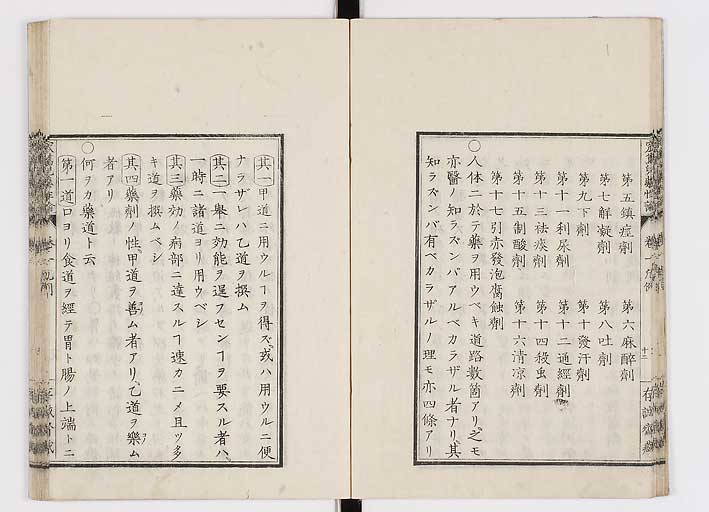 第五鎮痙劑 第六麻醉劑
第七解凝劑 第八吐劑
第九下劑 第十發汗劑
第十一利尿劑 第十二通經劑
第十三祛痰劑 第十四殺虫劑
第十五制酸劑 第十六清凉劑
第十七引赤發泡腐蝕劑
〇人体ニ於テ藥ヲ用ウベキ道路數箇アリ之モ
亦醫ノ知ラズンバアルベカラザル者ナリ其
知ラズンバ有ベカラザルノ理モ亦四條アリ
其一甲道ニ用ウルヿヲ得ズ或ハ用ウルニ便
ナラザレハ乙道ヲ撰ム
其二一擧ニ効能ヲ逞フセンヿヲ要スル者ハ
一時ニ諸道ヨリ用ウベシ
其三藥効ノ病部ニ達スルヿ速カニメ且ツ多
キ道ヲ撰ムベシ
其四藥劑ノ性甲道ヲ善ム者アリ乙道ヲ樂ム
者アリ
〇何ヲカ藥道ト云
第一道口ヨリ食道ヲ經テ胃ト腸ノ上端トニ